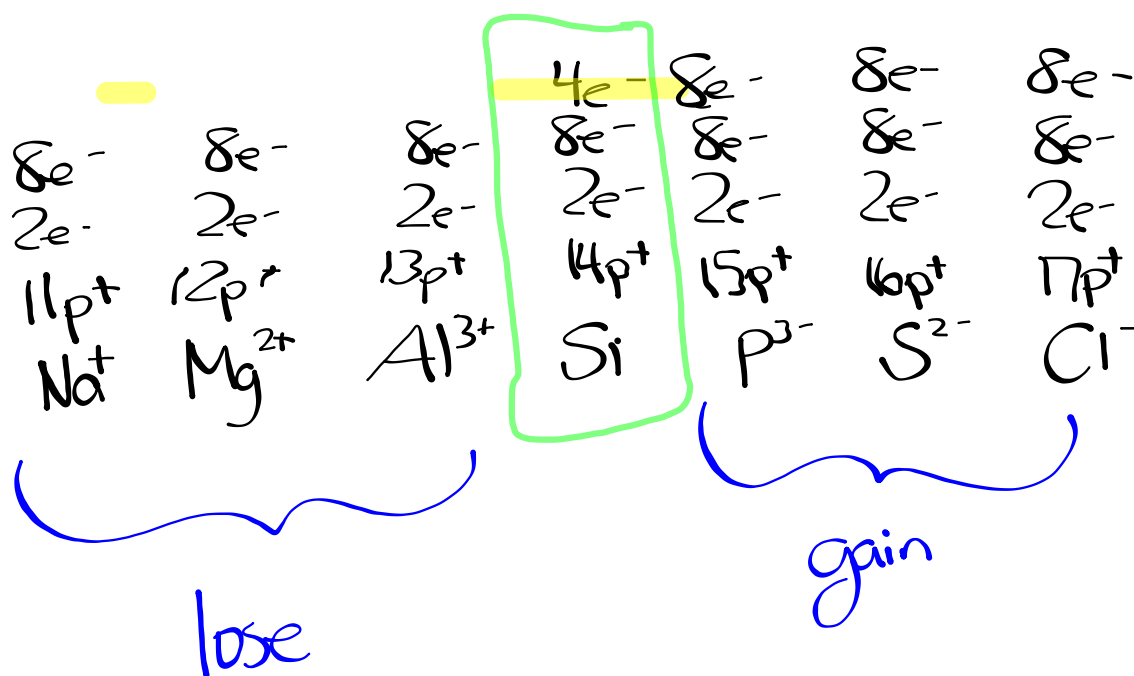 4e⁻ 8e⁻ 8e⁻ 8e⁻
8e⁻ 8e⁻ 8e⁻ 8e⁻ 8e⁻ 8e⁻ 8e⁻
2e⁻ 2e⁻ 2e⁻ 2e⁻ 2e⁻ 2e⁻ 2e⁻
11p⁺ 12p⁺ 13p⁺ 14p⁺ 15p⁺ 16p⁺ 17p⁺
Na⁺ Mg²⁺ Al³⁺ Si P³⁻ S²⁻ Cl⁻
gain
lose